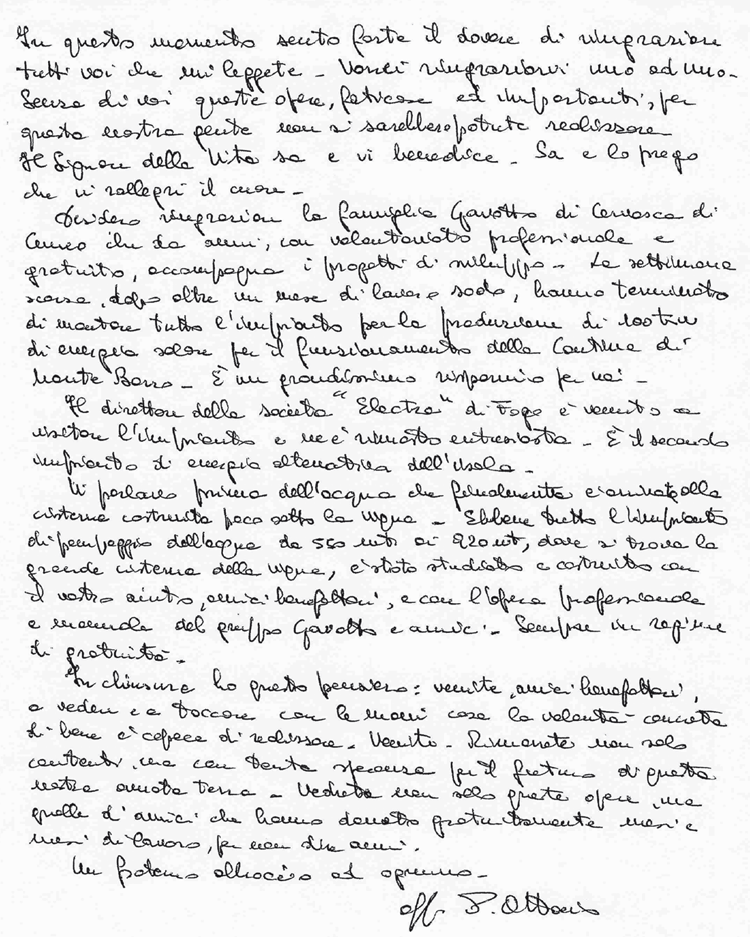 In questo momento sento forte il dovere di ringraziare
tutti voi che mi leggete - Vorrei ringraziarvi uno ad uno -
Senza di voi queste opere, faticose ed importanti, per
questa nostra gente non si sarebbero potute realizzare
Il Signore della Vita sa e vi benedice - Sa e lo prego
che vi rallegri il cuore -
Desidero ringraziare la famiglia Gavotto di Cervasca di
Cuneo che da anni, con volontariato professionale e
gratuito, accompagna i progetti di sviluppo - La settimana
scorsa, dopo oltre un mese di lavoro sodo, hanno terminato
di montare tutto l'impianto per la produzione di
di energia solare per il funzionamento della Cantina di
Monte Barro - È un grandissimo risparmio per noi -
Il direttore della società "Electra" di Fogo è venuto a
visitare l'impianto e ne è rimasto entusiasta - È il secondo
impianto di energia alternativa dell'isola -
Vi parlavo prima dell'acqua che finalmente è arrivata alla
cisterna costruita poco sotto la vigna - Ebbene tutto l'impianto
di pompaggio dell'acqua da 550 mt ai 920 mt, dove si trova la
grande cisterna della vigna, è stato studiato e costruito con
il vostro aiuto, amici benefattori, e con l'opera professionale
e manuale del gruppo Gavotto e amici - Sempre in regime
di gratuità -
In chiusura ho questo pensiero: venite, amici benefattori,
a vedere e a toccare con le mani cosa la volontà concreta
di bene è capace di realizzare - Venite - Rimarrete non solo
contenti, ma con tanta speranza per il futuro di questa
nostra amata terra - Vedrete non solo queste opere, ma
quelle di amici che hanno donato gratuitamente mesi e
mesi di lavoro, per non dire anni.
Un fraterno abbraccio ad ognuno -
aff. P. Ottavio